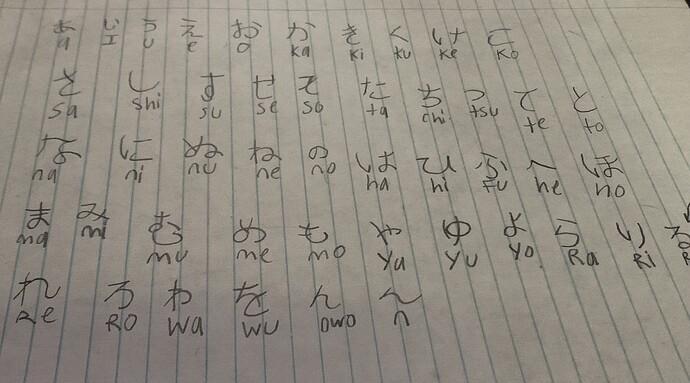 あ い う え お か き く け こ
a I u e o ka ki ku ke ko
さ し す せ そ た ち つ て と
sa shi su se so ta chi tsu te to
な に ぬ ね の は ひ ふ へ ほ
na ni nu ne no ha hi fu he ho
ま み む め も や ゆ よ ら り る
ma mi mu me mo ya yu yo Ra Ri
れ ろ わ を ん ん
Re Ro wa wu owo n